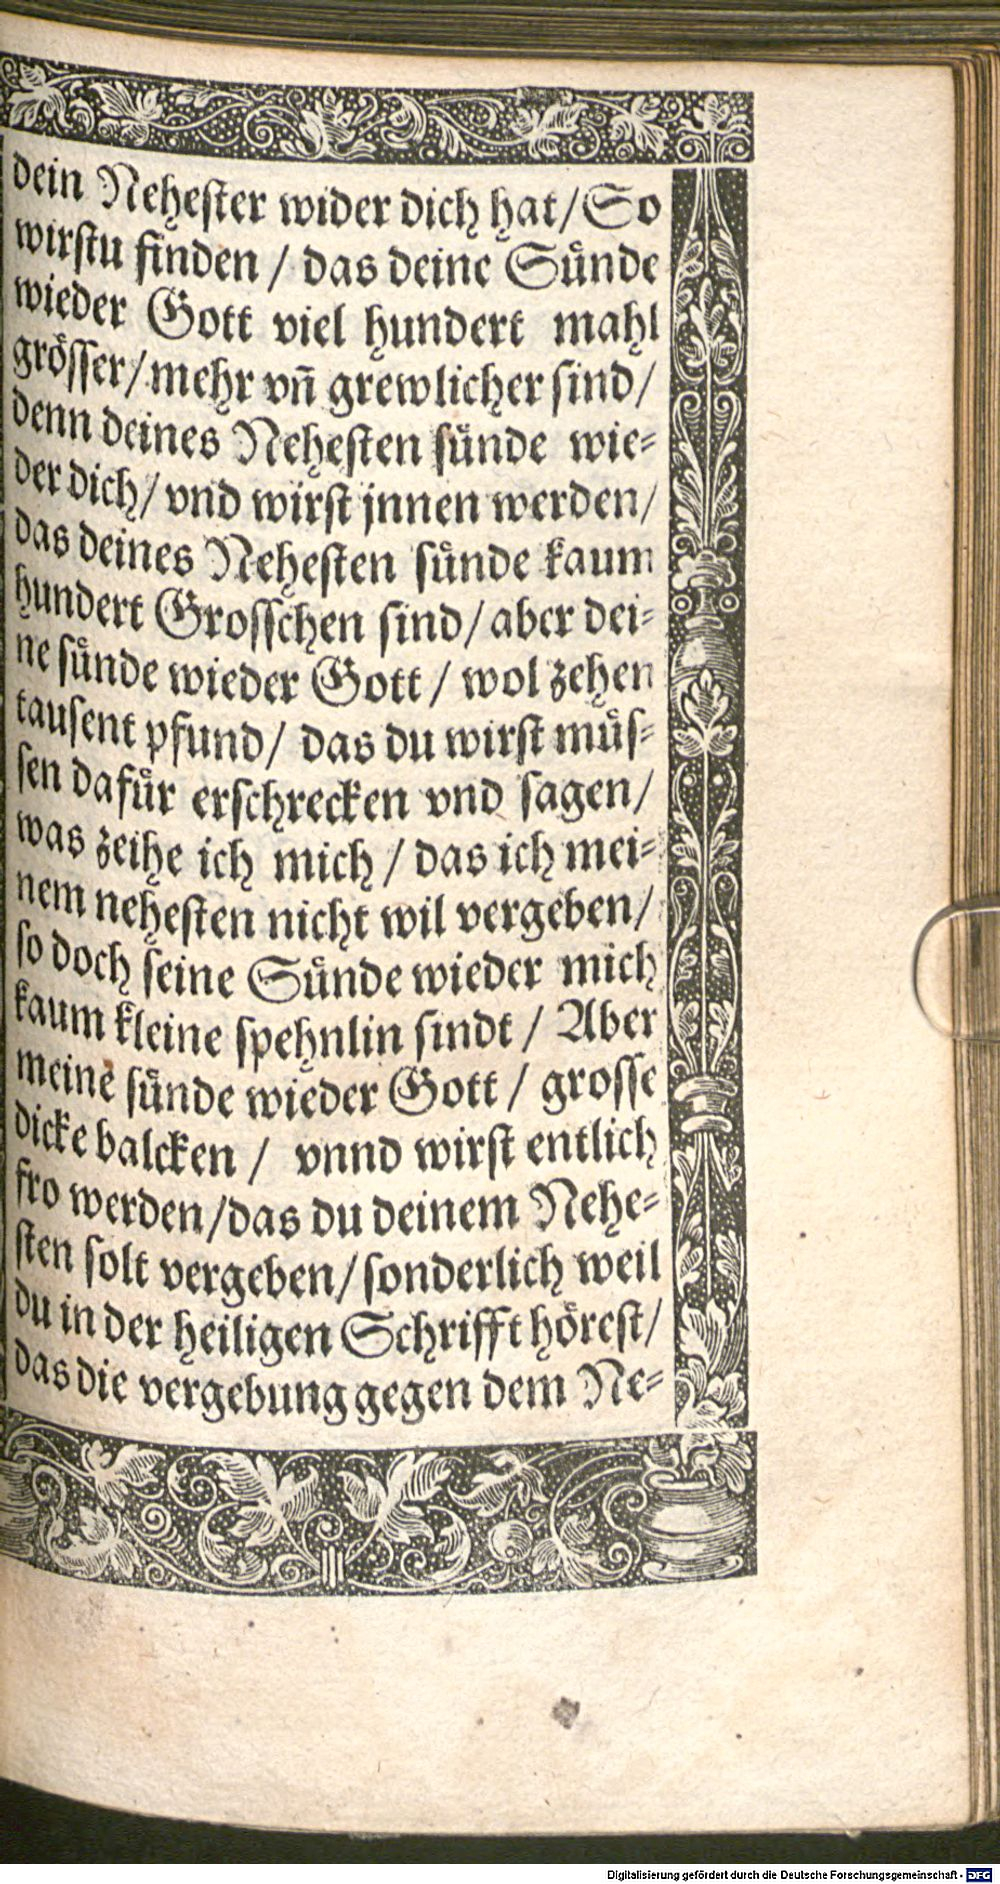 dein Nehester wider dich hat / So
wirstu finden / das deine Sünde
wieder Gott viel hundert mahl
grösser / mehr vn̄ grewlicher sind /
denn deines Nehesten sünde wie=
der dich / vnd wirst jnnen werden /
das deines Nehesten sünde kaum
hundert Grosschen sind / aber dei=
ne sünde wieder Gott / wol zehen
tausent pfund / das du wirst müs=
sen dafür erschrecken vnd sagen /
was zeihe ich mich / das ich mei=
nem nehesten nicht wil vergeben /
so doch seine Sünde wieder mich
kaum kleine spehnlin sindt / Aber
meine sünde wieder Gott / grosse
dicke balcken / vnnd wirst entlich
fro werden / das du deinem Nehe=
sten solt vergeben / sonderlich weil
du in der heiligen Schrifft hörest /
das die vergebung gegen dem Ne=
Digitalisierung gefördert durch die Deutsche Forschungsgemeinschaft - DFG